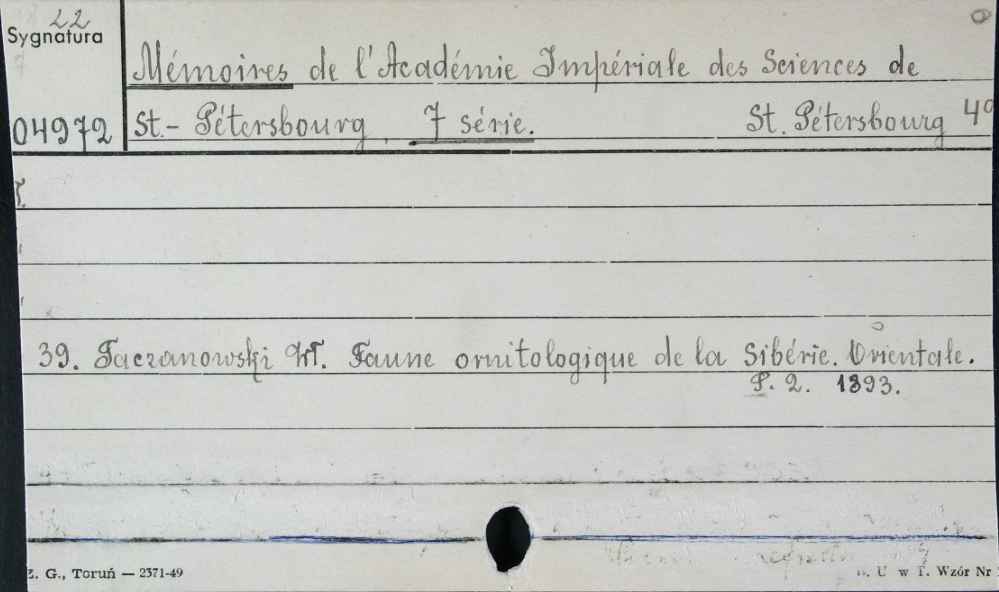 22
Sygnatura
Mémoires de l'Académie Impériale des Sciences de
04972 St.- Pétersbourg, 7 série. St. Pétersbourg 4°
T.
39. Taczanowski Wł. Faune ornitologique de la Sibérie. Orientale.
P. 2. 1893.
Z. G., Toruń — 2371-49
U w T. Wzór Nr